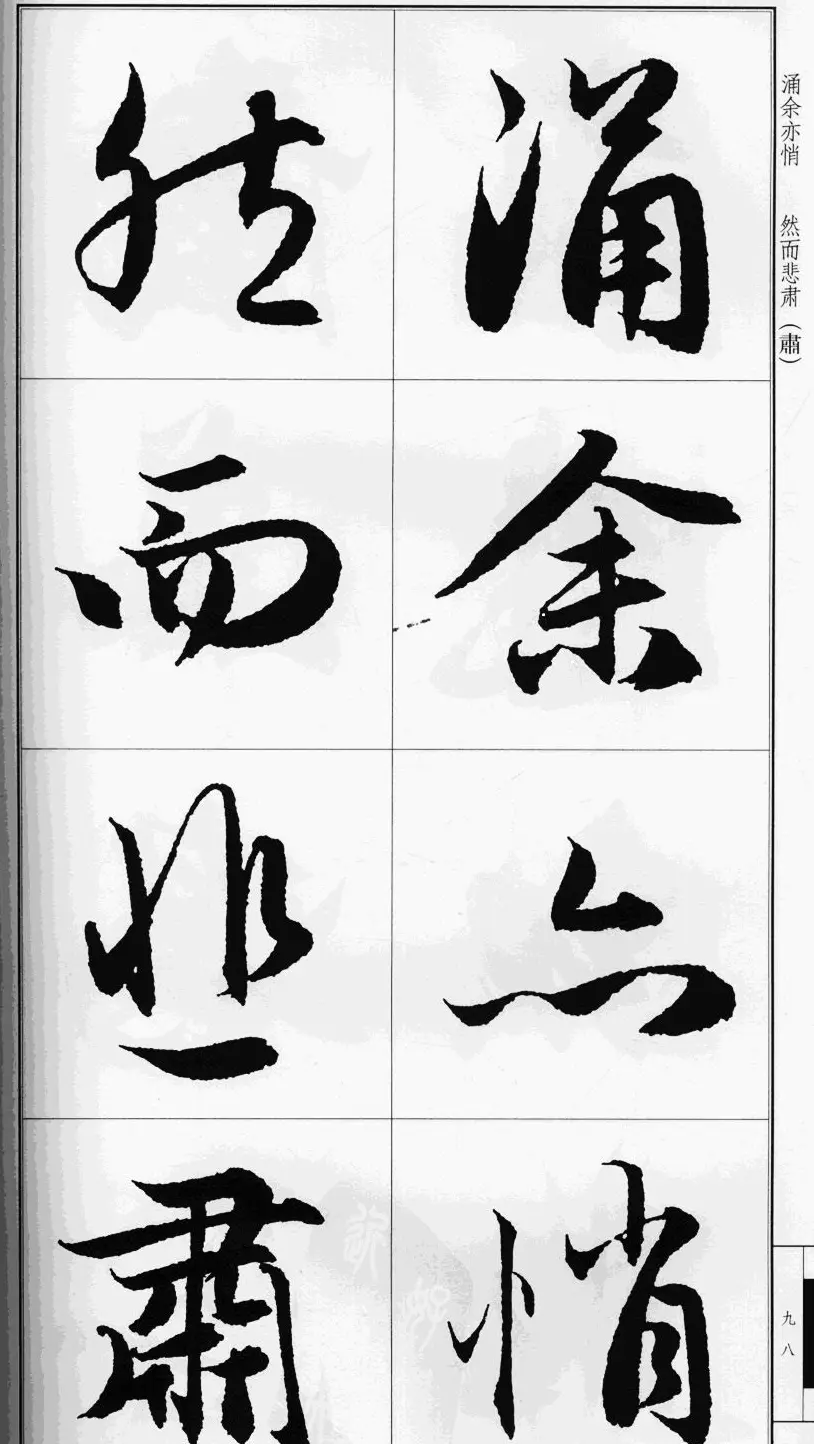 涌余亦悄
然而悲肅
涌余亦悄 然而悲肃(肅)
九八